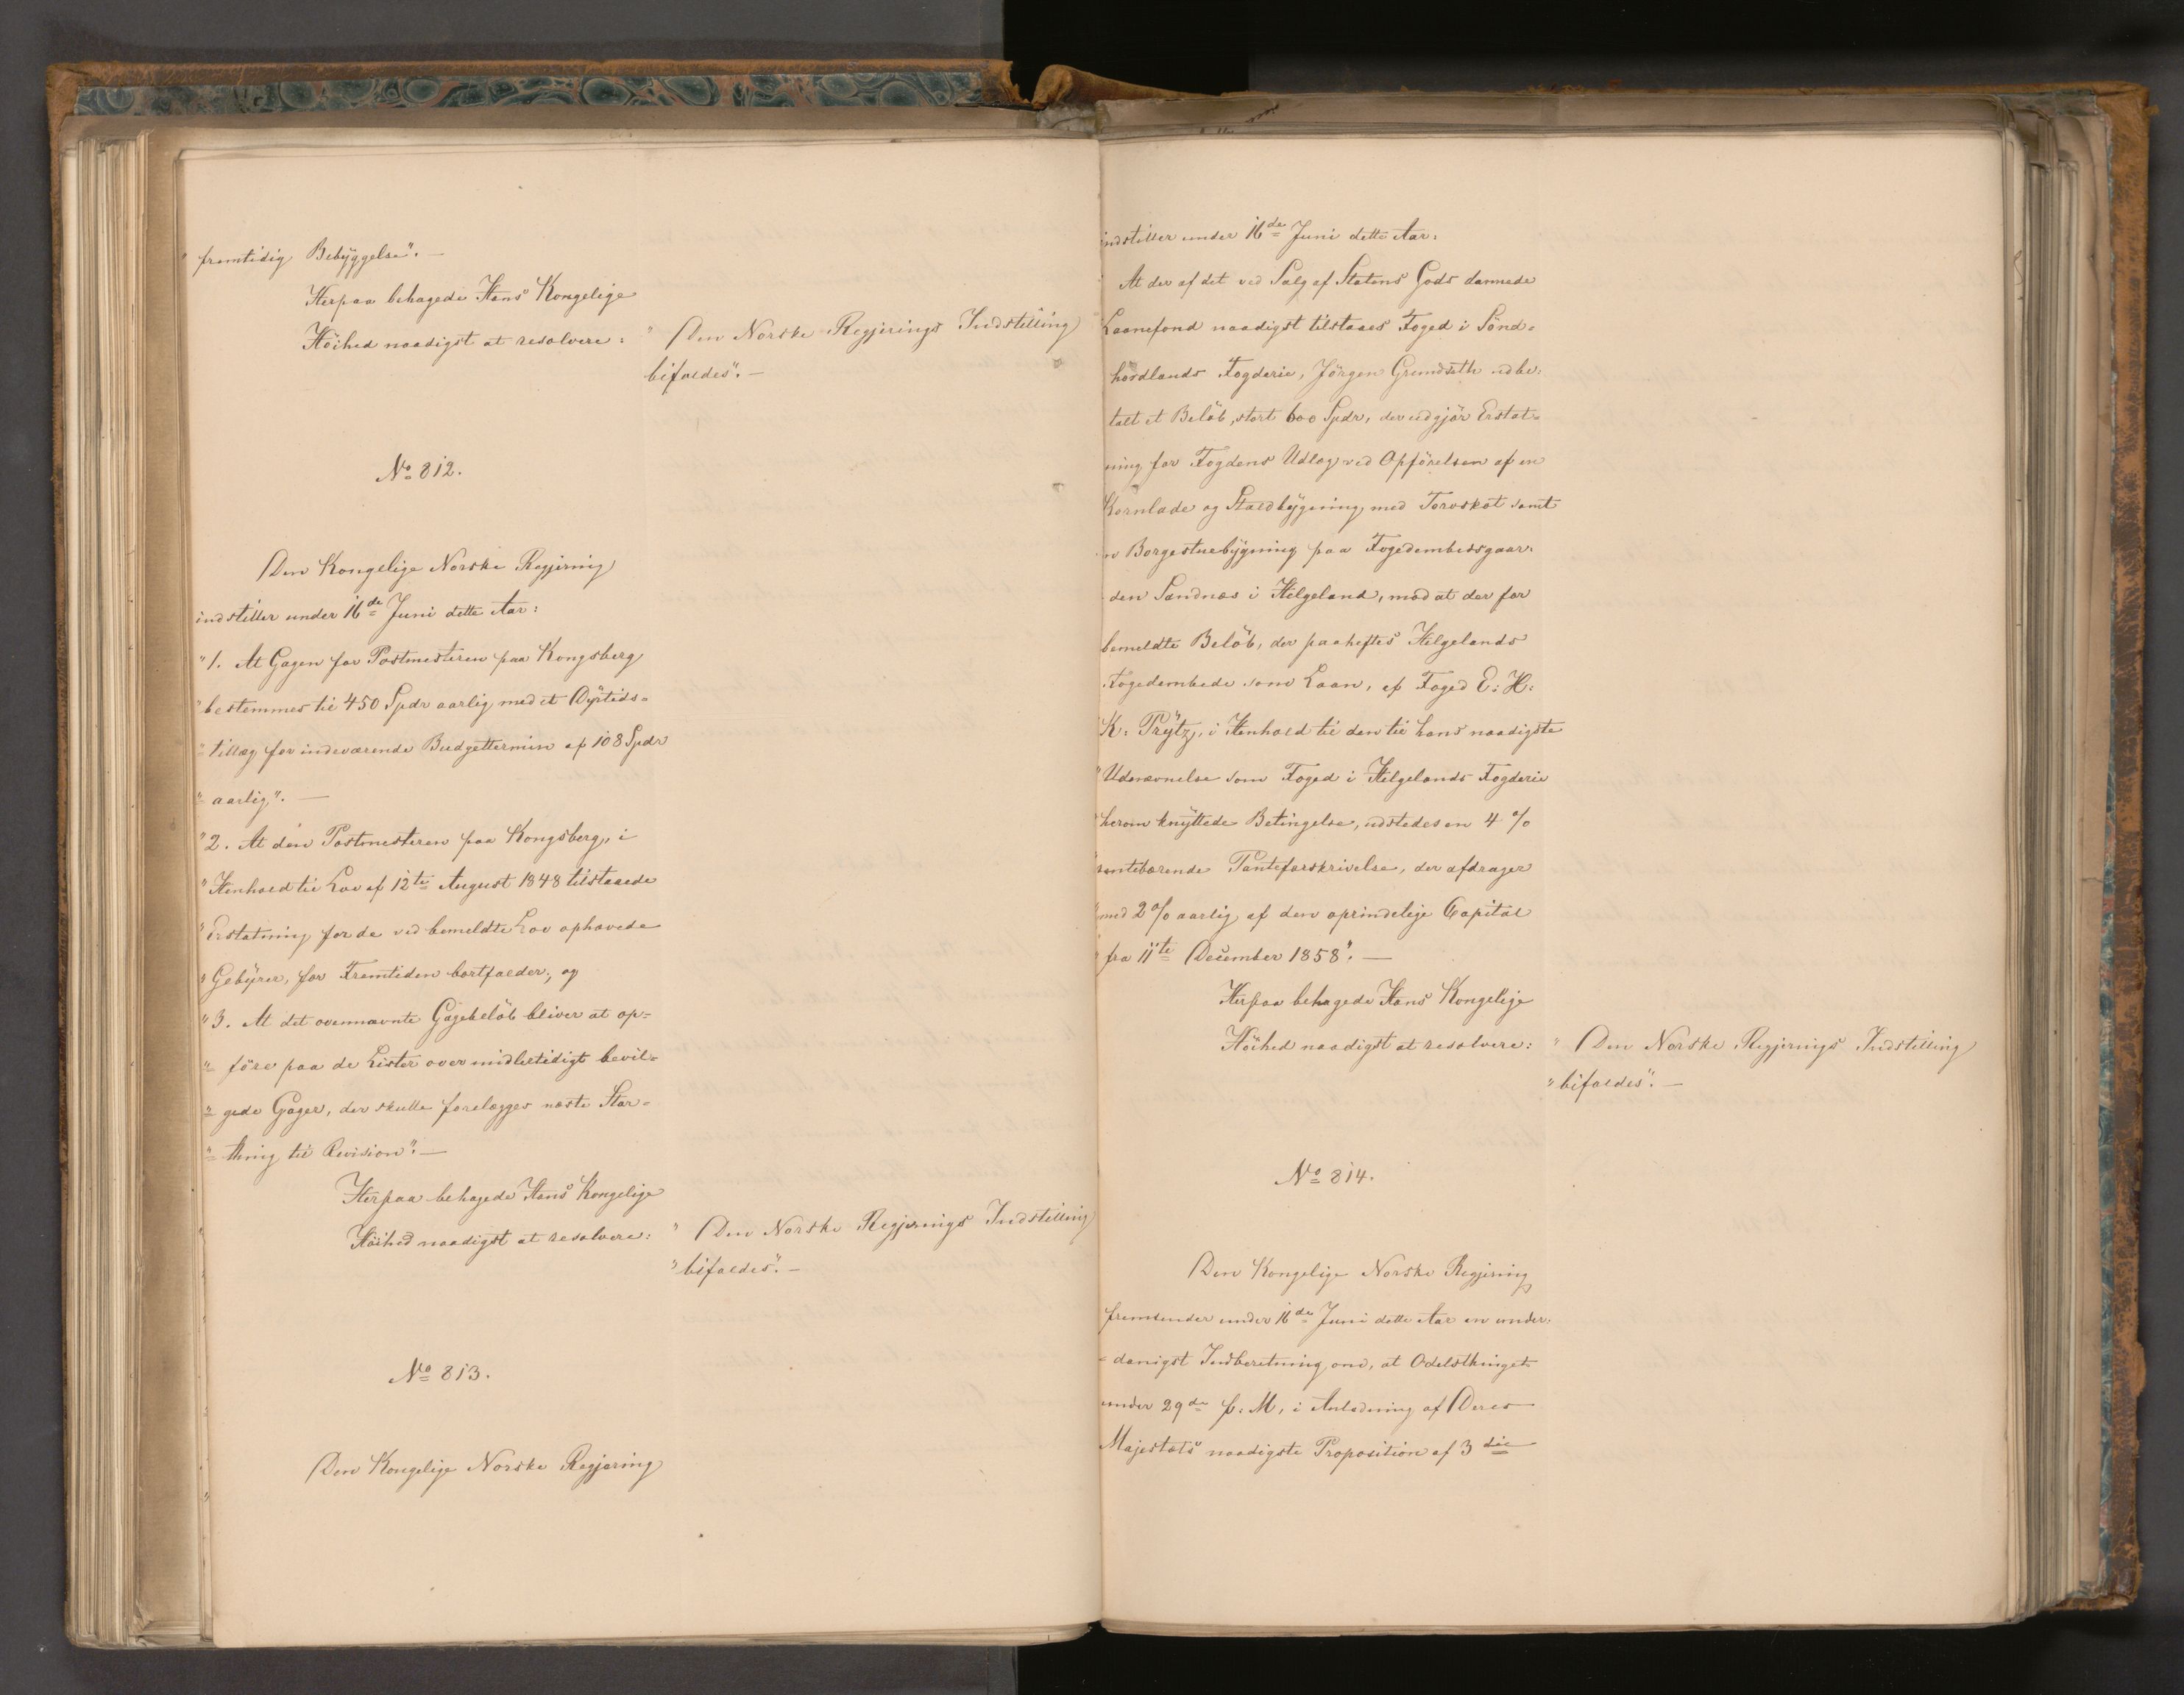 " fremtidig Bebyggelse". —
Herpaa behagede Hans Kongelige
Höihed naadigst at resolvere:
" Den Norske Regjerings Indstilling
bifaldes". —
No 812.
Den Kongelige Norske Regjering
indstiller under 16de Juni dette Aar:
"1. At Gagen for Postmesteren paa Kongsberg
"bestemmes til 450 Spdr aarlig med et Dyrtids-
"tillæg for indeværende Budgettermin af 108 Spdr
" aarlig". —
"2. At den Postmesteren paa Kongsberg, i
"Henhold til Lov af 12te August 1848 tilstaaede
"Erstatning for de ved bemeldte Lov ophævede
"Gebyrer, for Fremtiden bortfalder, og
"3. At det ovennævnte Gagebelöb bliver at op-
" före paa de Lister over midlertidigt bevil-
" gede Gager, der skulle forelægges næste Stor-
" thing til Revision". —
Herpaa behagede Hans Kongelige
Höihed naadigst at resolvere:
" Den Norske Regjerings Indstilling
"bifaldes". —
No 813.
Den Kongelige Norske Regjering
indstiller under 16de Juni dette Aar:
At der af det ved Salg af Statens Gods dannede
Laanefond naadigst tilstaaes Foged i Sönd-
hordlands Fogderie, Jörgen Grundseth udbe-
talt et Belöb, stort 600 Spdr, der udgjör Erstat-
ning for Fogdens Udlæg ved Opförelsen af en
Kornlade og Staldbygning med Torvskot samt
en Borgestuebygning paa Fogedembedsgaar-
den Sandnæs i Helgeland, mod at der for
bemeldte Belöb, der paaheftes Helgelands
Fogedembede som Laan, af Foged E: H:
K: Prytz, i Henhold til den til hans naadigste
"Udnævnelse som Foged i Helgelands Fogderie
"herom knyttede Betingelse, udstedes en 4 %
"rentebærende Panteforskrivelse, der afdrages
"med 2 % aarlig af den oprindelige Capital
" fra 11te December 1858". —
Herpaa behagede Hans Kongelige
Höihed naadigst at resolvere:
" Den Norske Regjerings Indstilling
"bifaldes". —
No 814.
Den Kongelige Norske Regjering
fremsender under 16de Juni dette Aar en under-
= danigst Indberetning om, at Odelsthinget
under 29de f: M, i Anledning af Deres
Majestæts naadigste Proposition af 3die